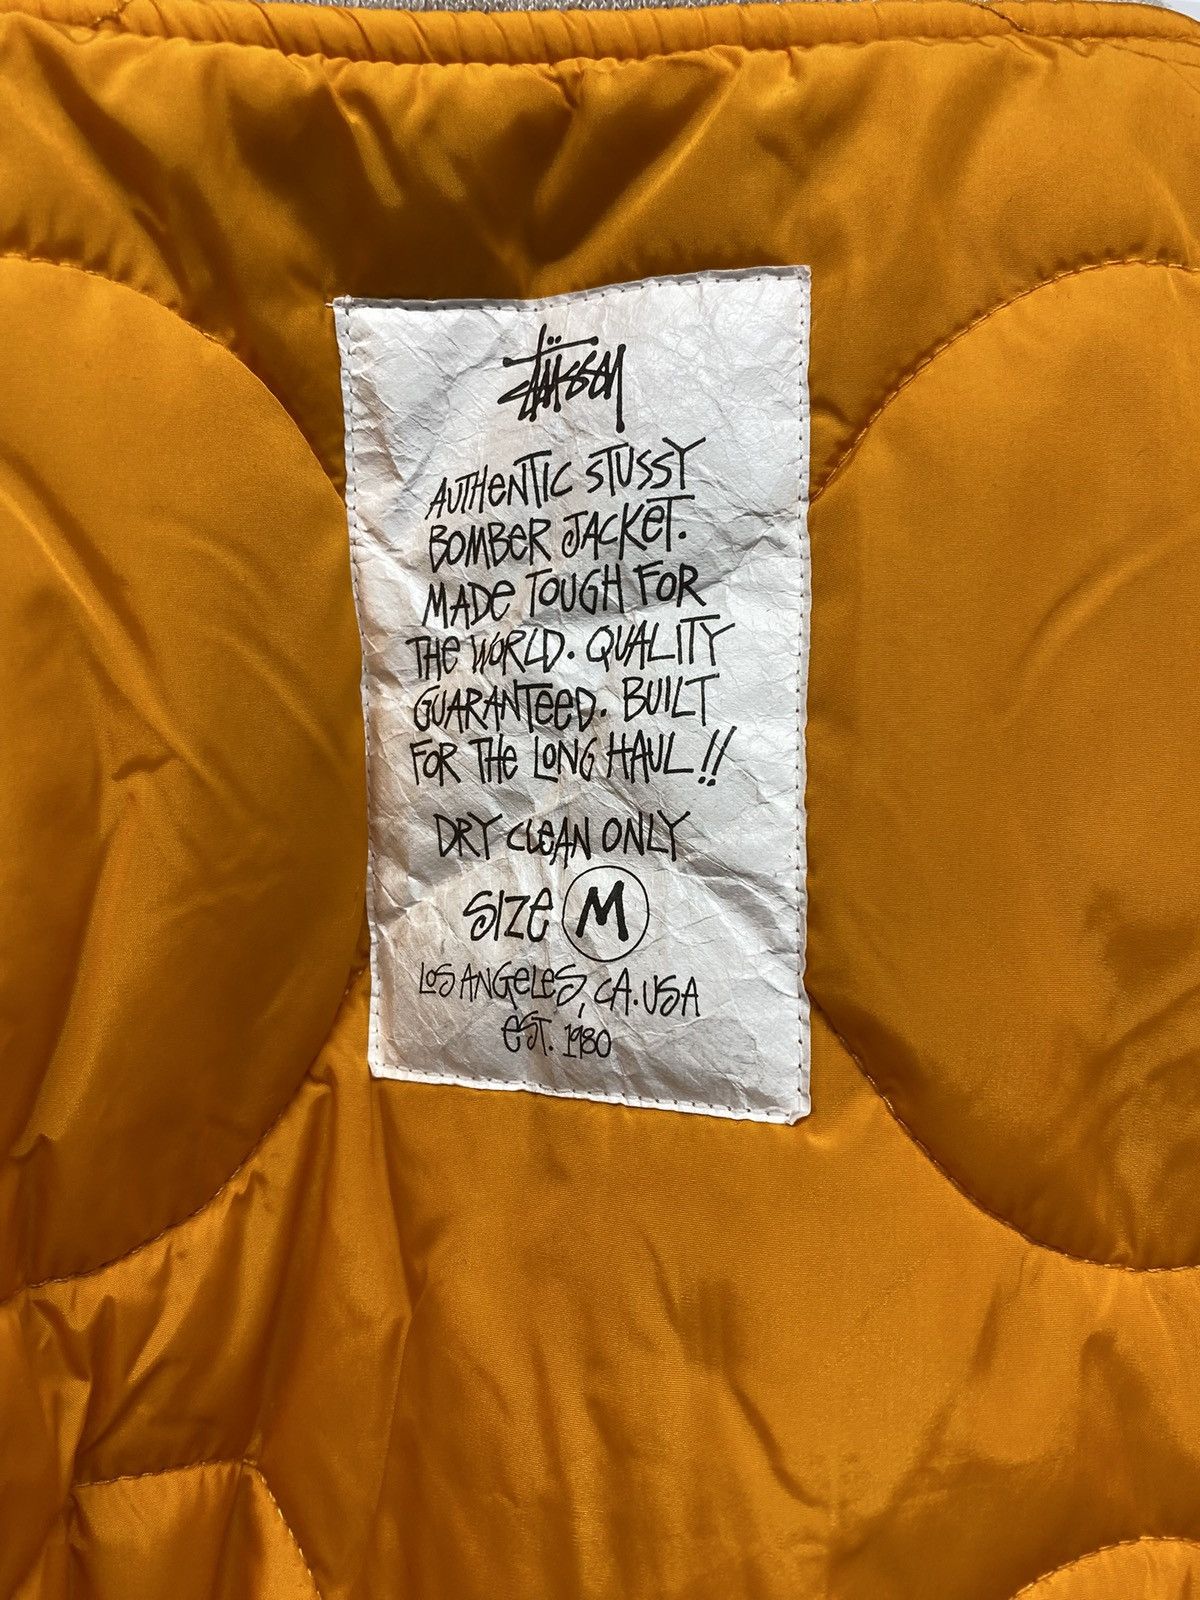 Stüssy
AUTHENTIC STUSSY
BOMBER JACKET.
MADE TOUGH FOR
THE WORLD. QUALITY
GUARANTEED. BUILT
FOR THE LONG HAUL!!
DRY CLEAN ONLY
SIZE M
LOS ANGELES, CA. USA
EST. 1980